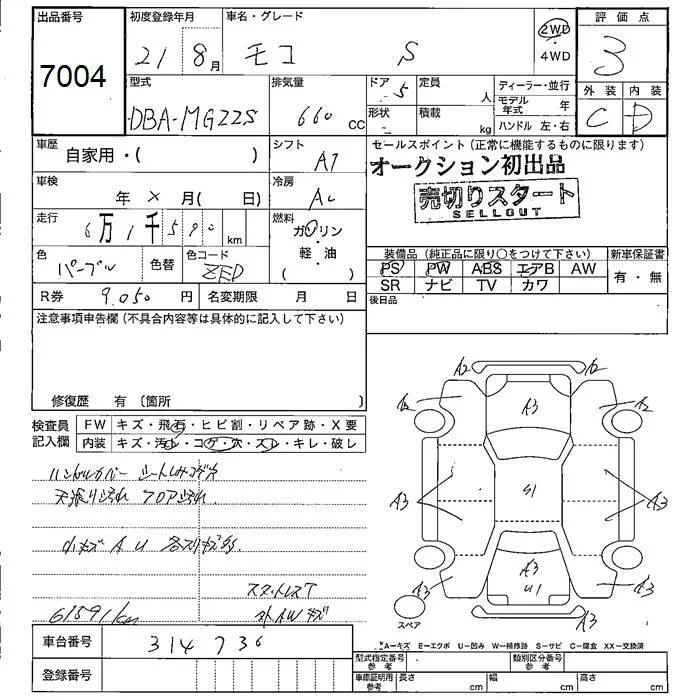 出品番号 初度登録年月 車名・グレード 評価点
7004 21 8月 モコ S 2WD 4WD 3
外装 内装
C D
型式 排気量 ドア 5 定員 人 ディーラー・並行
DBA-MG22S 660 CC 形状 積載 kg モデル年式 年
ハンドル 左・右
車歴 自家用・( ) シフト AT セールスポイント(正常に機能するものに限ります)
オークション初出品
売切りスタート
SELLOUT
車検 年 × 月( 日) 冷房 AC
走行 6万1千590km 燃料 ガソリン・軽油( )
色 パープル 色替 色コード ZED
装備品(純正品に限り○をつけて下さい) 新車保証書
PS PW ABS エアB AW 有・無
SR ナビ TV カワ
R券 9,050円 名変期限 月 日 後日品
注意事項申告欄(不具合内容等は具体的に記入して下さい)
修復歴 有(箇所 )
検査員記入欄 FW キズ・飛石・ヒビ割・リペア跡・X要
内装 キズ・汚レ・コゲ・穴・スレ・キレ・破レ
ハンドルカバー シートしみコゲ穴
天張り汚れ フロア汚れ
小キズ AU 各スリキズ
スタットレスT
61591km
A2 A2
A2 A3 A2
A3 S1 A3
A3 A3 U1 A3
A3
スペア
車台番号 314736
A=キズ E=エクボ U=凹み W=補修跡 S=サビ C=腐食 XX=交換済
型式指定番号 参考 類別区分番号 参考
登録番号
車庫証明用 参考 長さ cm 幅 cm 高さ cm